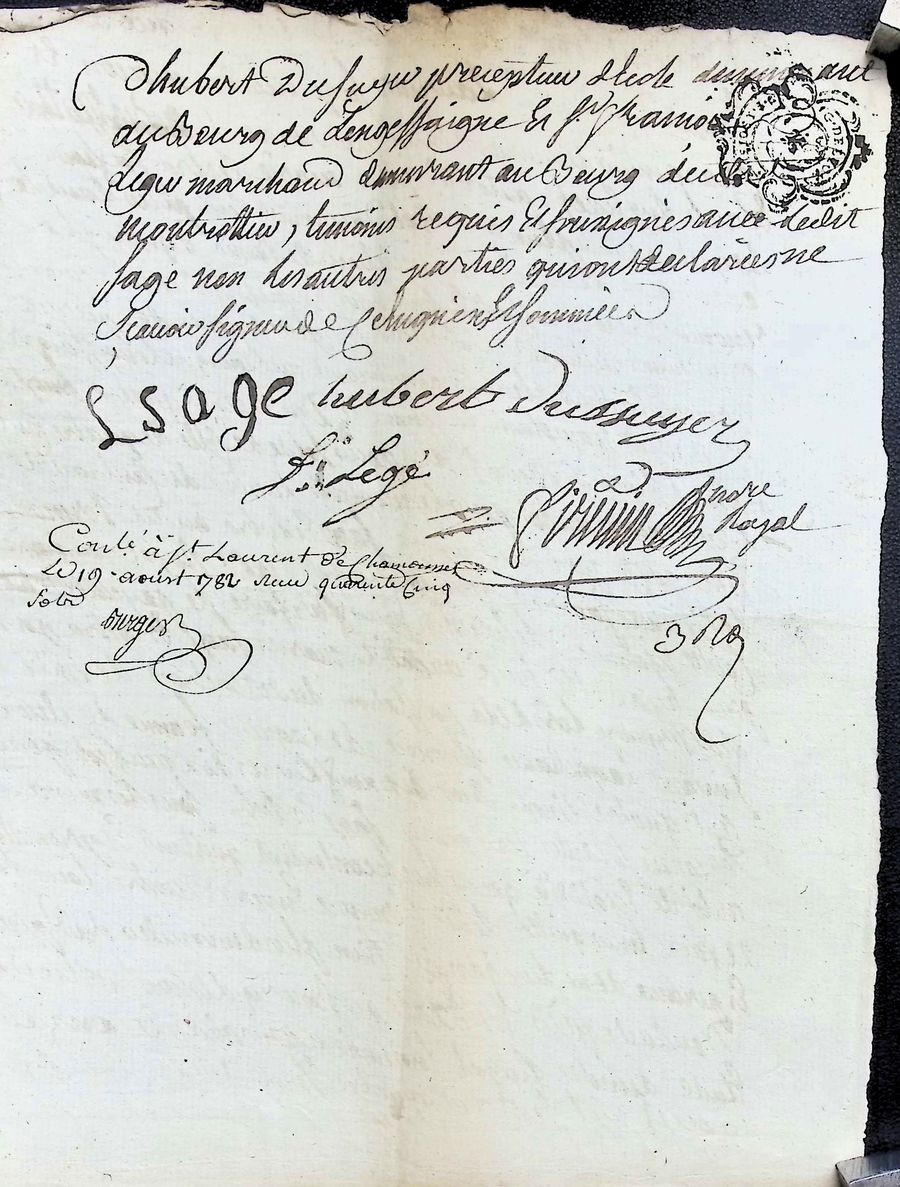 d'hubert Dussuyer precepteur d'Ecole demeurant
du Bourg de Longessaigne Et Sr. françois
Legé marchand demeurant au Bourg de
montrottier, temoins requis Et soussignés avec ledit
sage non les autres parties qui ont declarées ne
Scavoir signer de ce Enquis Et sommées
L Sage hubert Dussuyer
fs: Legé
nore
Royal
Conlé à St. Laurent de Chamousset
Le 19 aoust 1782 Reçu quarante Cinq
sols
3 Ro